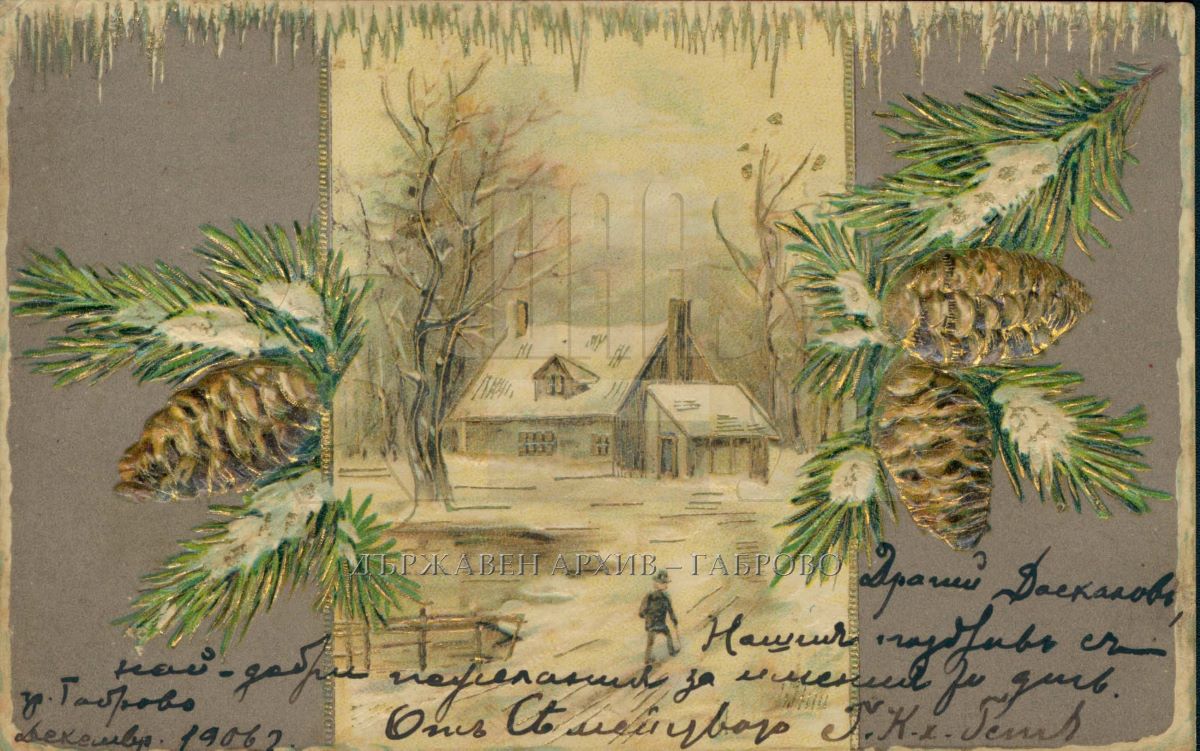 ДЪРЖАВЕН АРХИВ – ГАБРОВО
Драгий Даскаловъ,
Нашия поздравъ съ
най-добри пожелания за имения ѝ день.
Отъ Семейство Г. К. х.
гр. Габрово
Декемвр. 1906 г.